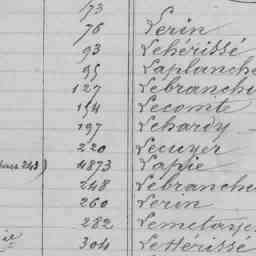 73
76 Lerin
93 Lehérissé
95 Laplanche
127 Lebranchu
154 Lecomte
197 Lehardy
220 Lecuyer
243) 1873 Lapie
248 Lebranchu
260 Lerin
282 Lemetayer
304 LeHérissé